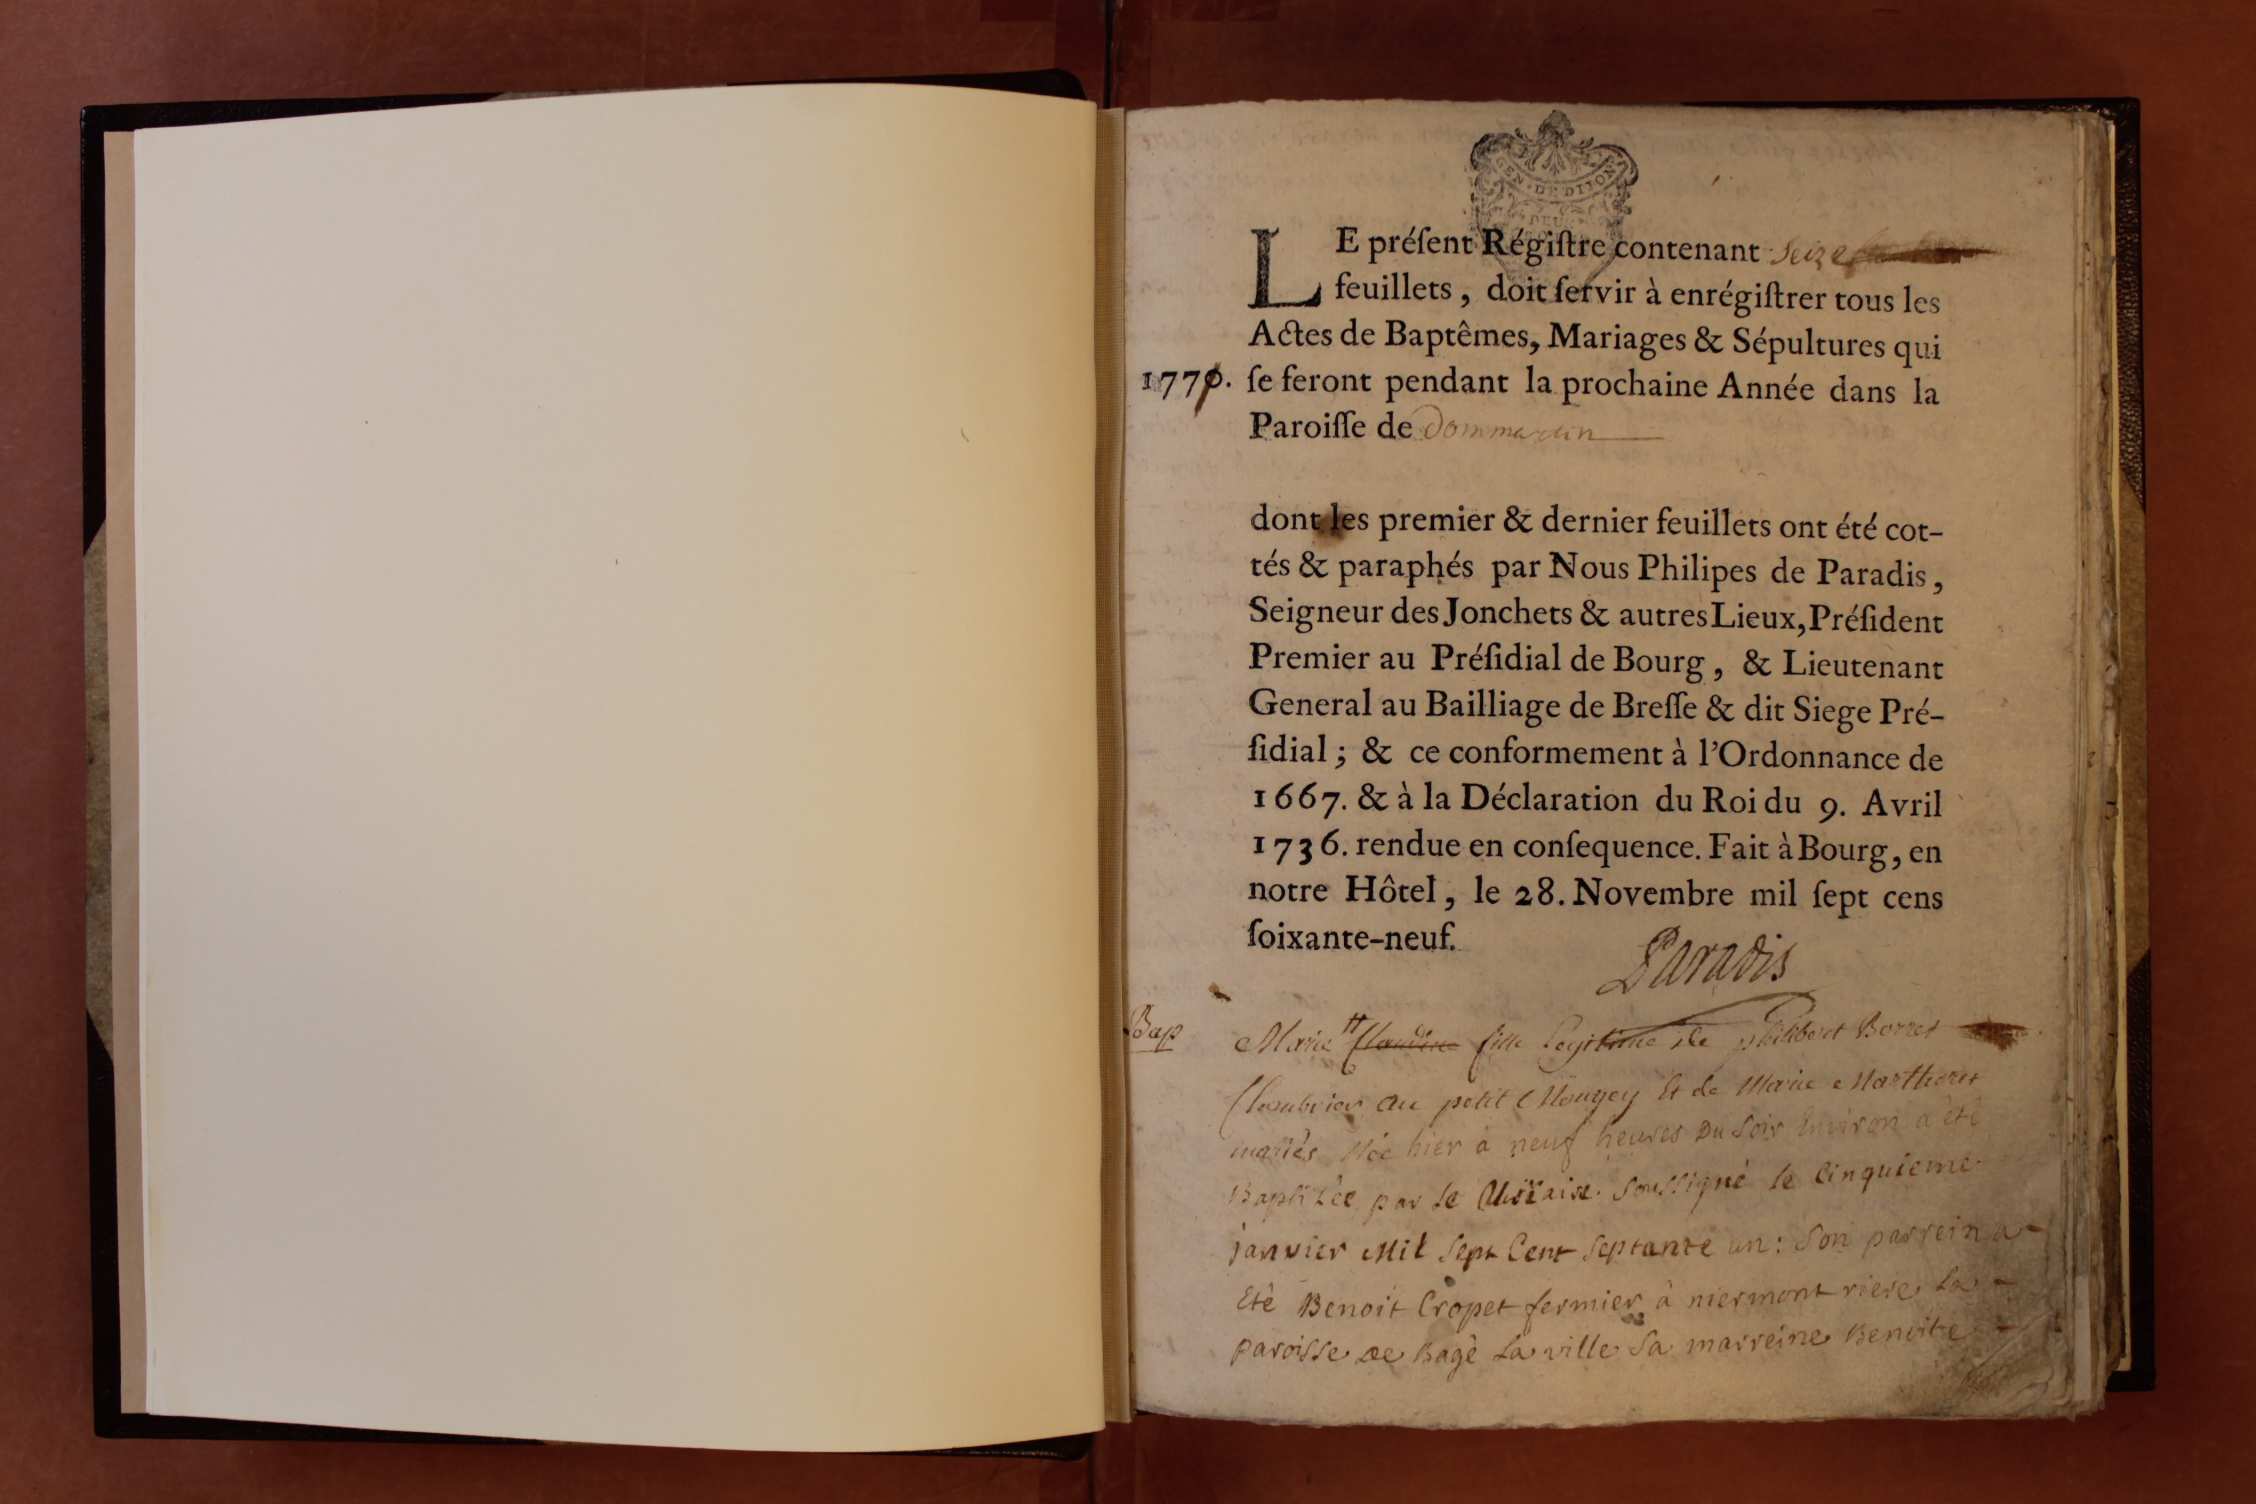 GEN · DE DIJON
DEUX
LE préſent Régiſtre contenant Seize
feuillets, doit ſervir à enrégiſtrer tous les
Actes de Baptêmes, Mariages & Sépultures qui
1770. ſe feront pendant la prochaine Année dans la
Paroiſſe de Dommartin
dont les premier & dernier feuillets ont été cot-
tés & paraphés par Nous Philipes de Paradis,
Seigneur des Jonchets & autres Lieux, Préſident
Premier au Préſidial de Bourg, & Lieutenant
General au Bailliage de Breſſe & dit Siege Pré-
ſidial; & ce conformement à l'Ordonnance de
1667. & à la Déclaration du Roi du 9. Avril
1736. rendue en conſequence. Fait à Bourg, en
notre Hôtel, le 28. Novembre mil ſept cens
ſoixante-neuf.
Paradis
Bap Marie Claudine fille Legitime de philibert Borret
au petit Mongey Et de Marie Marthoret
mariés Née hier à neuf heures Du Soir Environ a été
Baptizée par le Vicaire Soussigné le Cinquieme
janvier Mil Sept Cent Septante un : Son parrein a
Eté Benoit Cropet fermier à niermont riere La
paroisse De Bagé La ville Sa marreine Benoite